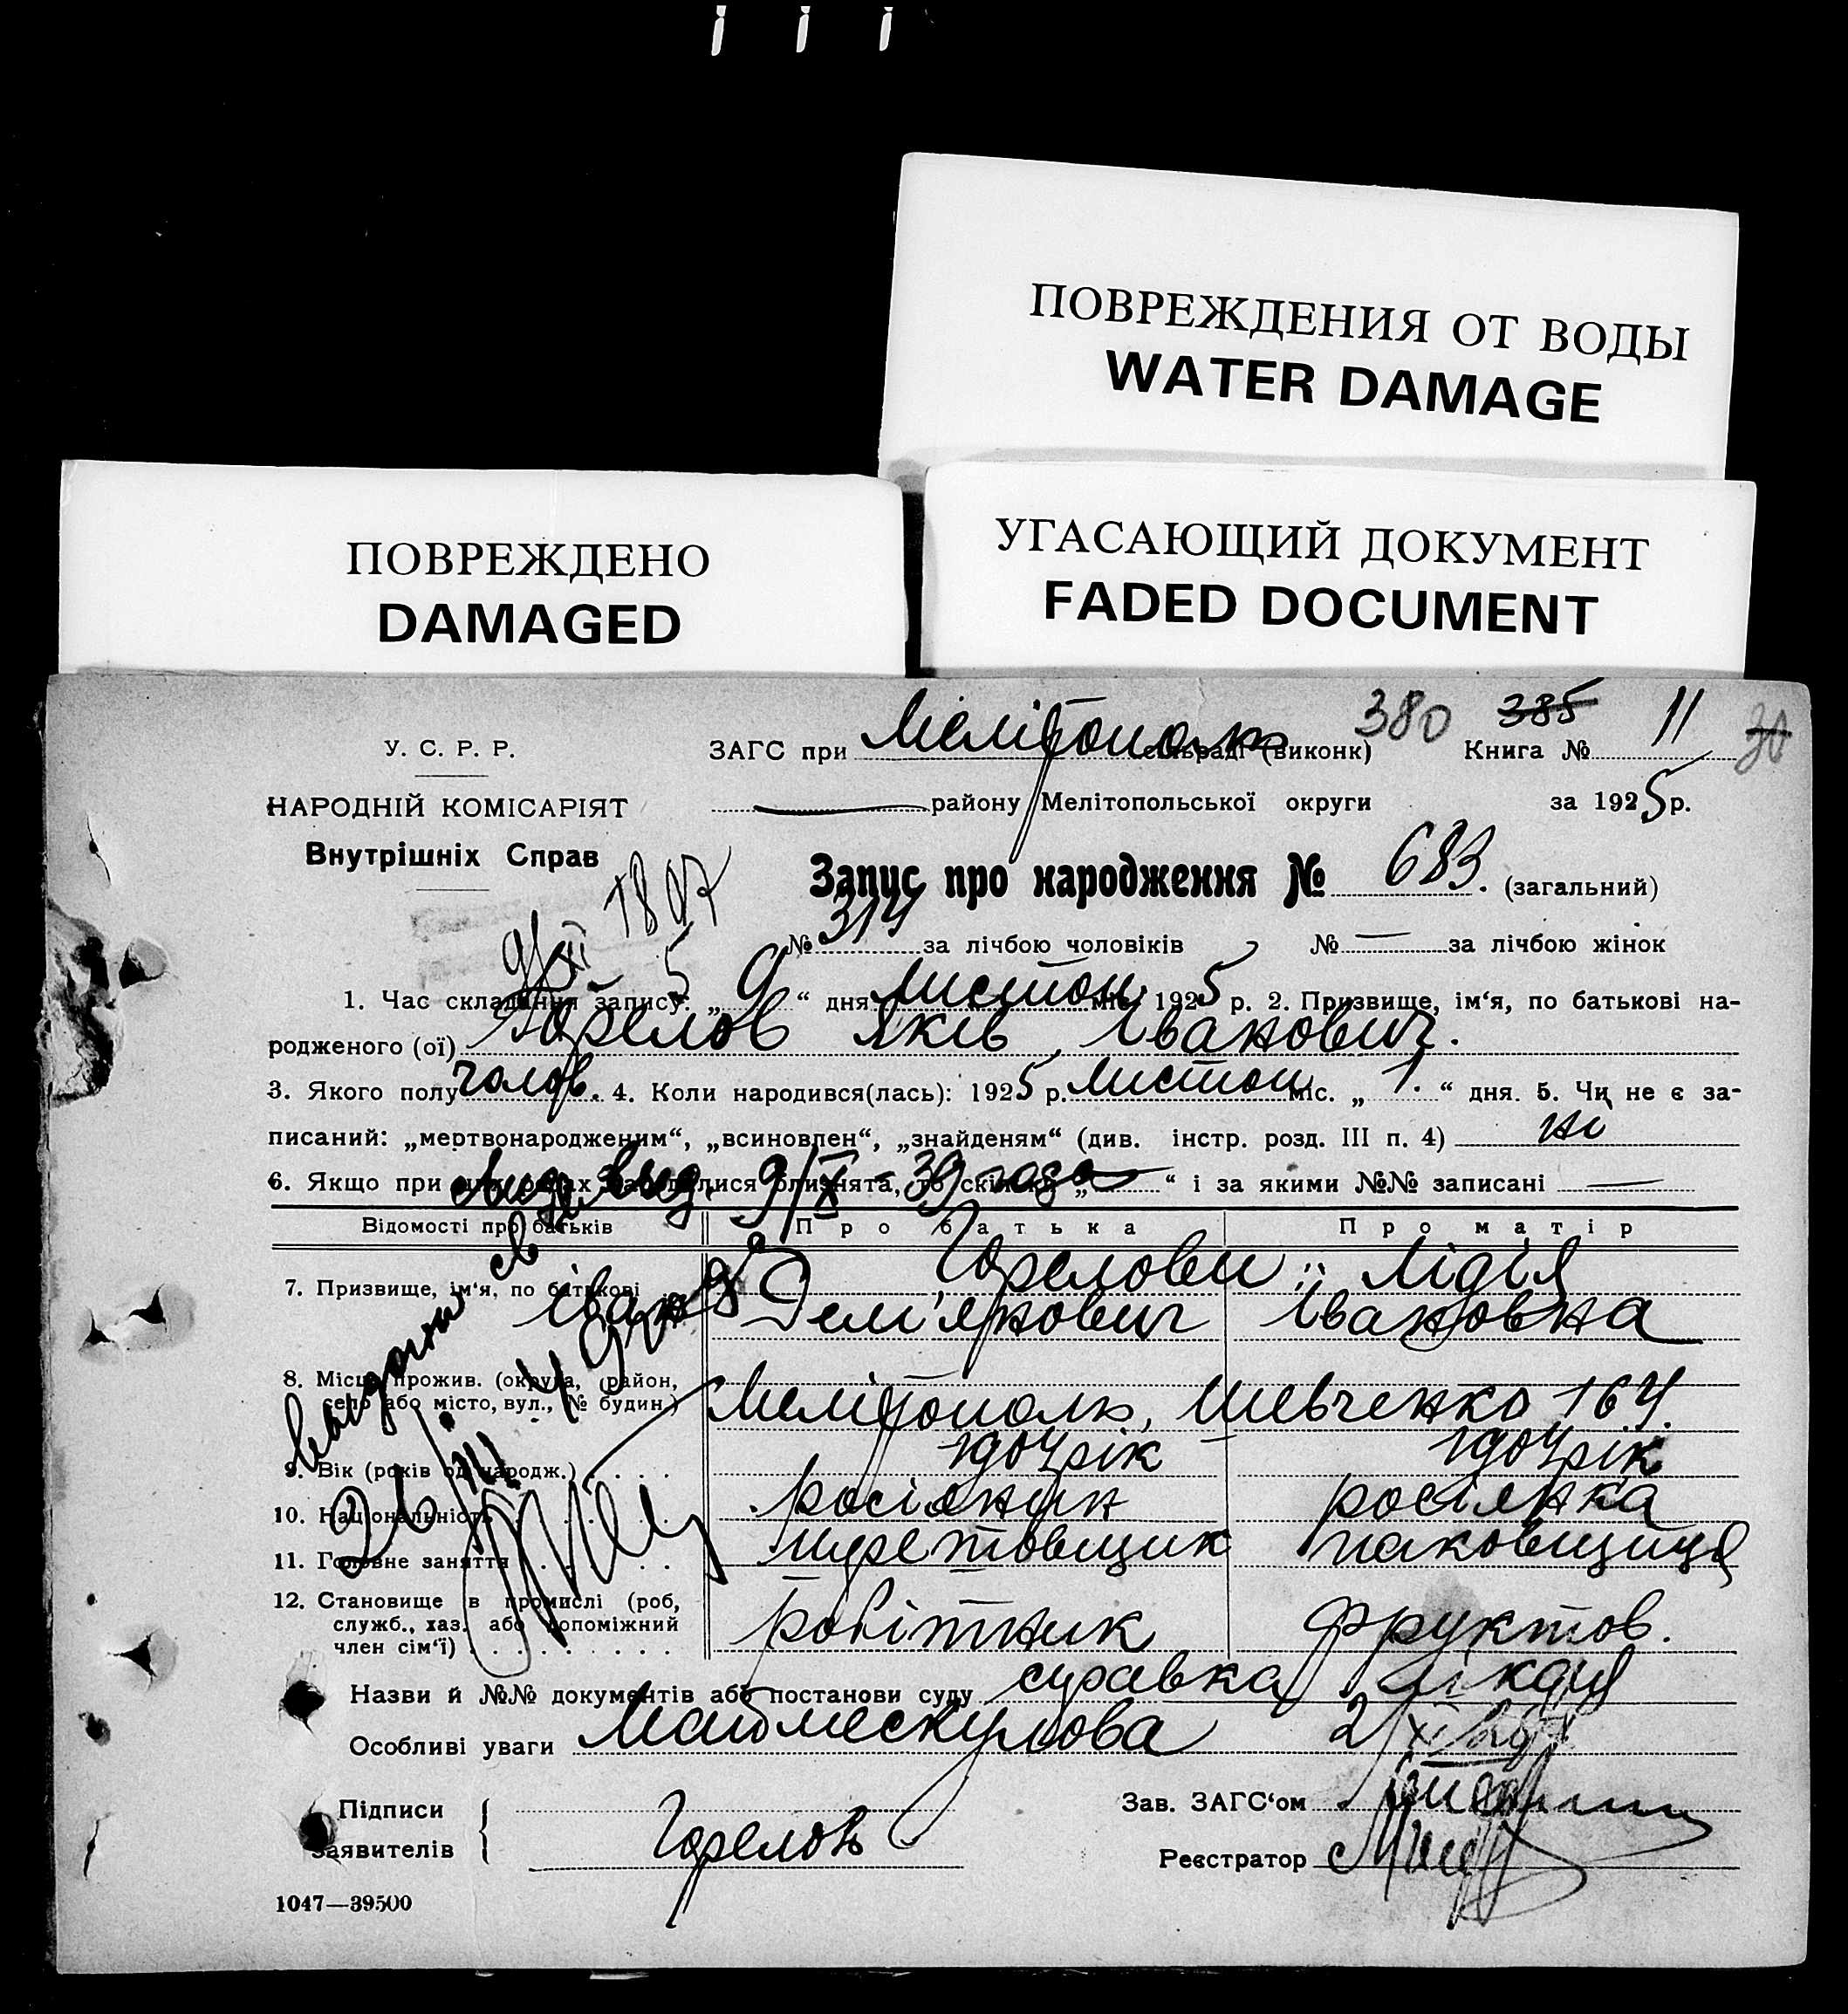 ПОВРЕЖДЕНИЯ ОТ ВОДЫ
WATER DAMAGE
ПОВРЕЖДЕНО
DAMAGED
УГАСАЮЩИЙ ДОКУМЕНТ
FADED DOCUMENT
У. С. Р. Р.
НАРОДНІЙ КОМІСАРІЯТ
Внутрішніх Справ
380 385 11 30
ЗАГС при Мелітополь сельраді (виконк) Книга №
району Мелітопольської округи за 1925 р.
Запис про народження № 683. (загальний)
9/XI 5 1807
№ 314 за лічбою чоловіків № — за лічбою жінок
1. Час складання запису: „ 9 “ дня листоп. міс. 1925 р. 2. Призвище, ім‘я, по батькові на-
родженого (ої) Горелов Яків Іванович.
3. Якого полу чолов. 4. Коли народився(лась): 1925 р. листоп. міс. „ 1. “ дня. 5. Чи не є за-
писаний: „мертвонародженим“, „всиновлен“, „знайденям“ (див. інстр. розд. III п. 4) ні
6. Якщо при цих родах народилися близнята, то скільки „ — “ і за якими №№ записані —
9/X - 39 года
Відомості про батьків Про батька Про матір
7. Призвище, ім‘я, по батькові Горелови Лідія
Іван Дем'янович Івановна
8. Місце прожив. (округа, район,
село або місто, вул., № будин.) Мелітополь, Шевченко 164.
9. Вік (років од народж.) 1904 рік 1904 рік
10. Національність росіянин росіянка
11. Головне заняття паковщиця
12. Становище в промислі (роб,
служб., хаз. або допоміжний
член сім‘ї) робітник фруктов.
Назви й №№ документів або постанови суду справка лікаря
Особливі уваги 2/XI
Підписи
заявителів Горелов
Зав. ЗАГС‘ом
Реєстратор
1047—39500